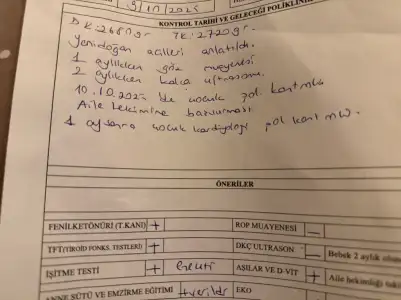 9/10/2025
KONTROL TARİHİ VE GELECEĞİ POLİKLİNİ
D.K: 2680 gr TK: 2720 gr
Yenidoğan acilleri anlatıldı.
1 aylıkken göz muayenesi
2 aylıkken kalça ultrasonu
10.10.2025 'de çocuk pol. kontrolü
Aile hekimine başvurması
1 ay sonra çocuk kardiyoloji pol kontrolü.
ÖNERİLER
FENİLKETONÜRİ (T.KANI) + ROP MUAYENESİ –
TFT(TİROİD FONKS. TESTLERİ) + DKÇ ULTRASON – Bebek 2 aylık
İŞİTME TESTİ + Geçti AŞILAR VE D-VİT + Aile hekimliği
ANNE SÜTÜ VE EMZİRME EĞİTİMİ +verildi EKO